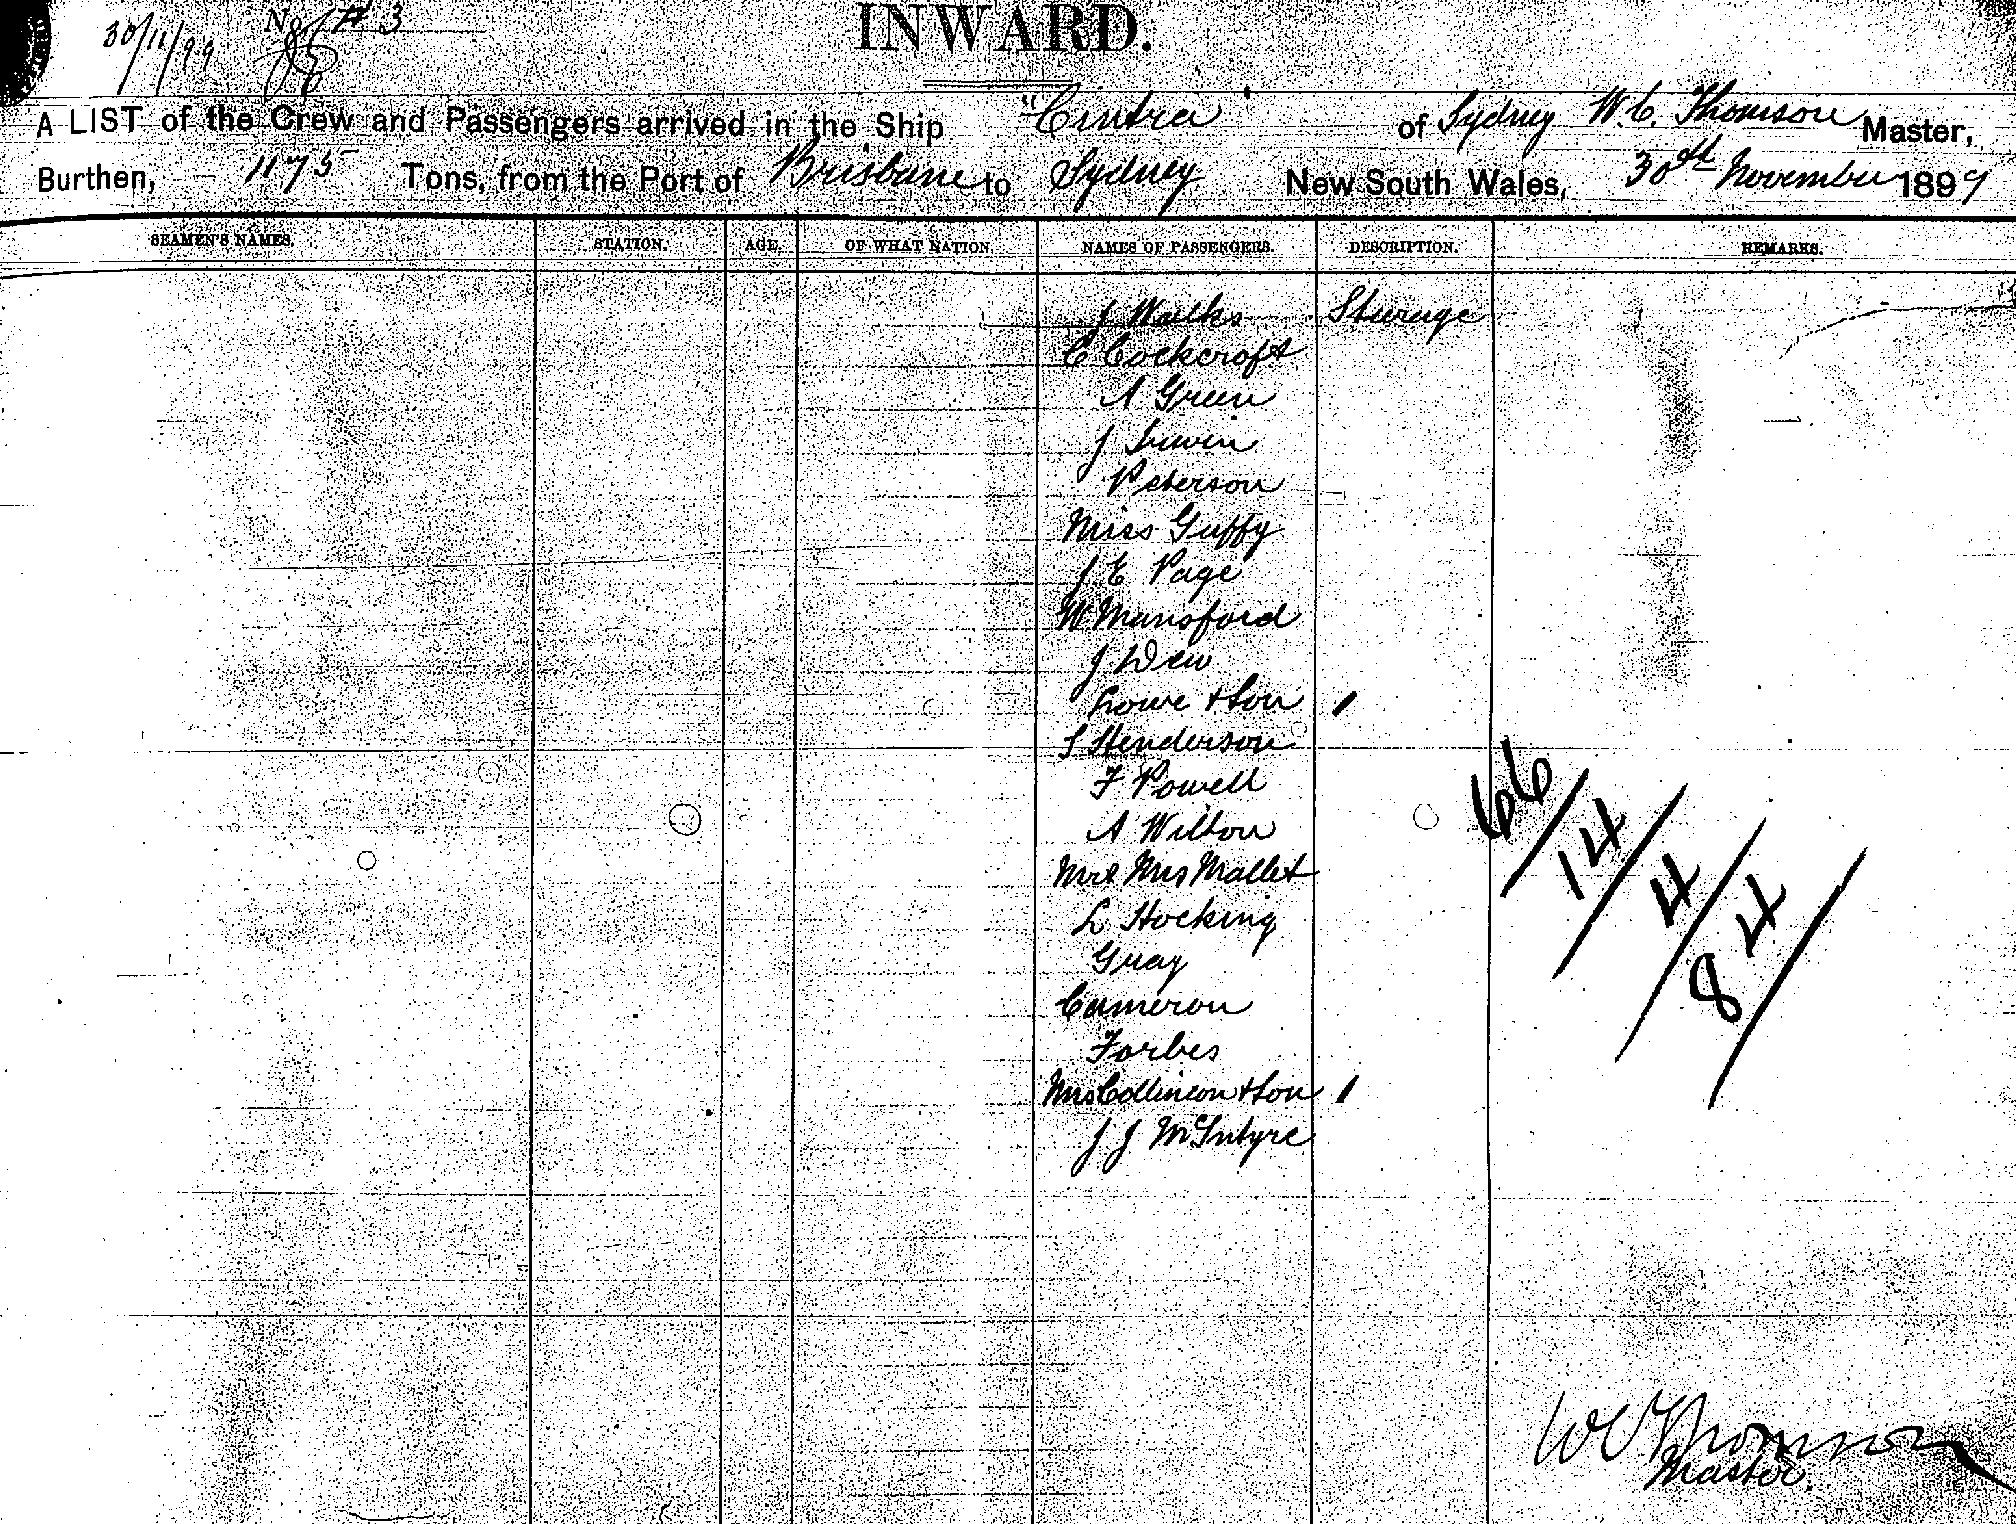 30/11/99 No # 3
INWARD.
A LIST of the Crew and Passengers arrived in the Ship "Cintra" of Sydney W. C. Thomson Master,
Burthen, 1175 Tons, from the Port of Brisbane to Sydney New South Wales, 30th November 1899
SEAMEN'S NAMES. STATION. AGE. OF WHAT NATION. NAMES OF PASSENGERS. DESCRIPTION. REMARKS.
J Walks Steerage
C Cockcroft
A Green
J Irwin
Peterson
Miss Guffy
J E Page
W Mansford
J Dew
Lowe & Son
S Henderson
F Powell
A Wilton
Mr & Mrs Mallet
L Hocking
Gray
Cameron
Forbes
Mrs Collinson & Son
J J McIntyre
66/14/4/84/
W C Thomson
Master.